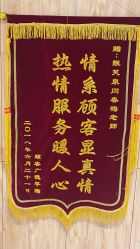 赠：魏笑泉同春梅老师
情系顾客显真情
热情服务暖人心
顾客广德平赠
二〇一八年六月二十一日